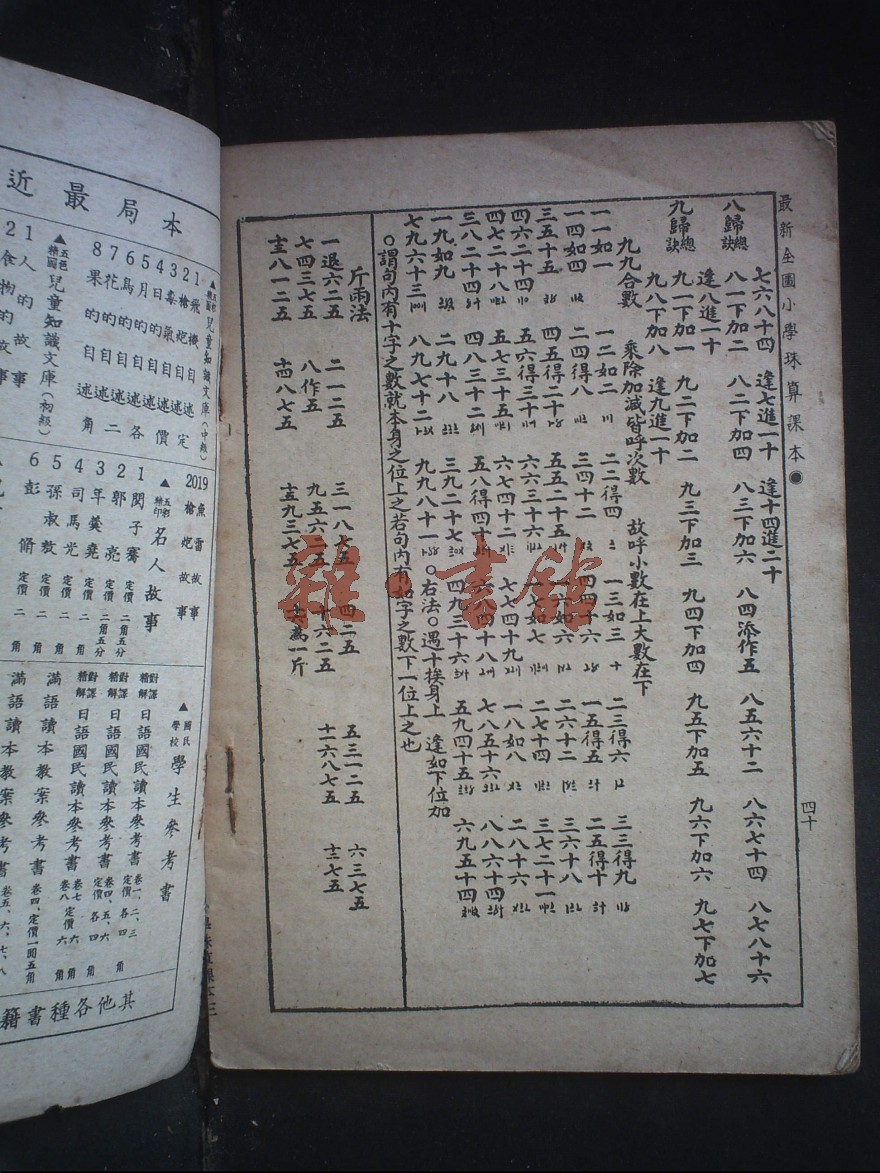 最新全圖小學珠算課本
四十
七六八十四　逢七進一十　逢十四進二十
八歸總訣　八一下加二　八二下加四　八三下加六　八四添作五　八五六十二　八六七十四　八七八十六
逢八進一十
九歸總訣　九一下加一　九二下加二　九三下加三　九四下加四　九五下加五　九六下加六　九七下加七
九八下加八　逢九進一十
九九合數　乘除加減皆呼次數　故呼小數在上大數在下
一一如一　一二如二　二二得四　一三如三　二三得六　三三得九
一四如四　二四得八　三四十二　四四十六　一五得五　二五得十
三五十五　四五得二十　五五二十五　一六如六　二六十二　三六十八
四六二十四　五六得三十　六六三十六　一七如七　二七十四　三七二十一
四七二十八　五七三十五　六七四十二　七七四十九　一八如八　二八十六
三八二十四　四八三十二　五八得四十　六八四十八　七八五十六　八八六十四
一九如九　二九十八　三九二十七　四九三十六　五九四十五　六九五十四
七九六十三　八九七十二　九九八十一　○右法○遇十挨身上　逢如下位加
○謂句內有十字之數就本身之位上之若句內有如字之數下一位上之也
斤兩法
一退六二五　二一二五　三一八七五　四二五　五三一二五　六三七五
七四三七五　八作五　九五六二五　十六二五　十一六八七五　十二七五
十三八一二五　十四八七五　十五九三七五　十六為一斤
本局最近
▲五彩精圖 兒童知識文庫(中級)
1飛機自述 定
2槍炮自述 價
3毒氣自述
4日的自述 各
5月的自述
6鳥的自述
7花的自述 二
8果的自述 角
▲五色精圖 兒童知識文庫(初級)
1人的故事
2食物的故事
19魚雷故事
20槍炮故事
▲五彩精印 名人故事
1閔子騫 定價 二角五分
2郭亮 定價 二角五分
3年羹堯 定價 二角
4司馬光 定價 二角
5孫叔敖 定價 二角
6彭脩 定價 二角
▲國民學校 學生參考書
對課精解 日語國民讀本參考書 卷一、二、三 定價各四角
對課精解 日語國民讀本參考書 卷四、五、六 定價各四角
日語國民讀本參考書 卷七卷八 定價六角
滿語讀本教案參考書 卷四、定價一圓五角
滿語讀本教案參考書 卷五、六、七、八
其他各種書籍
雜·書館